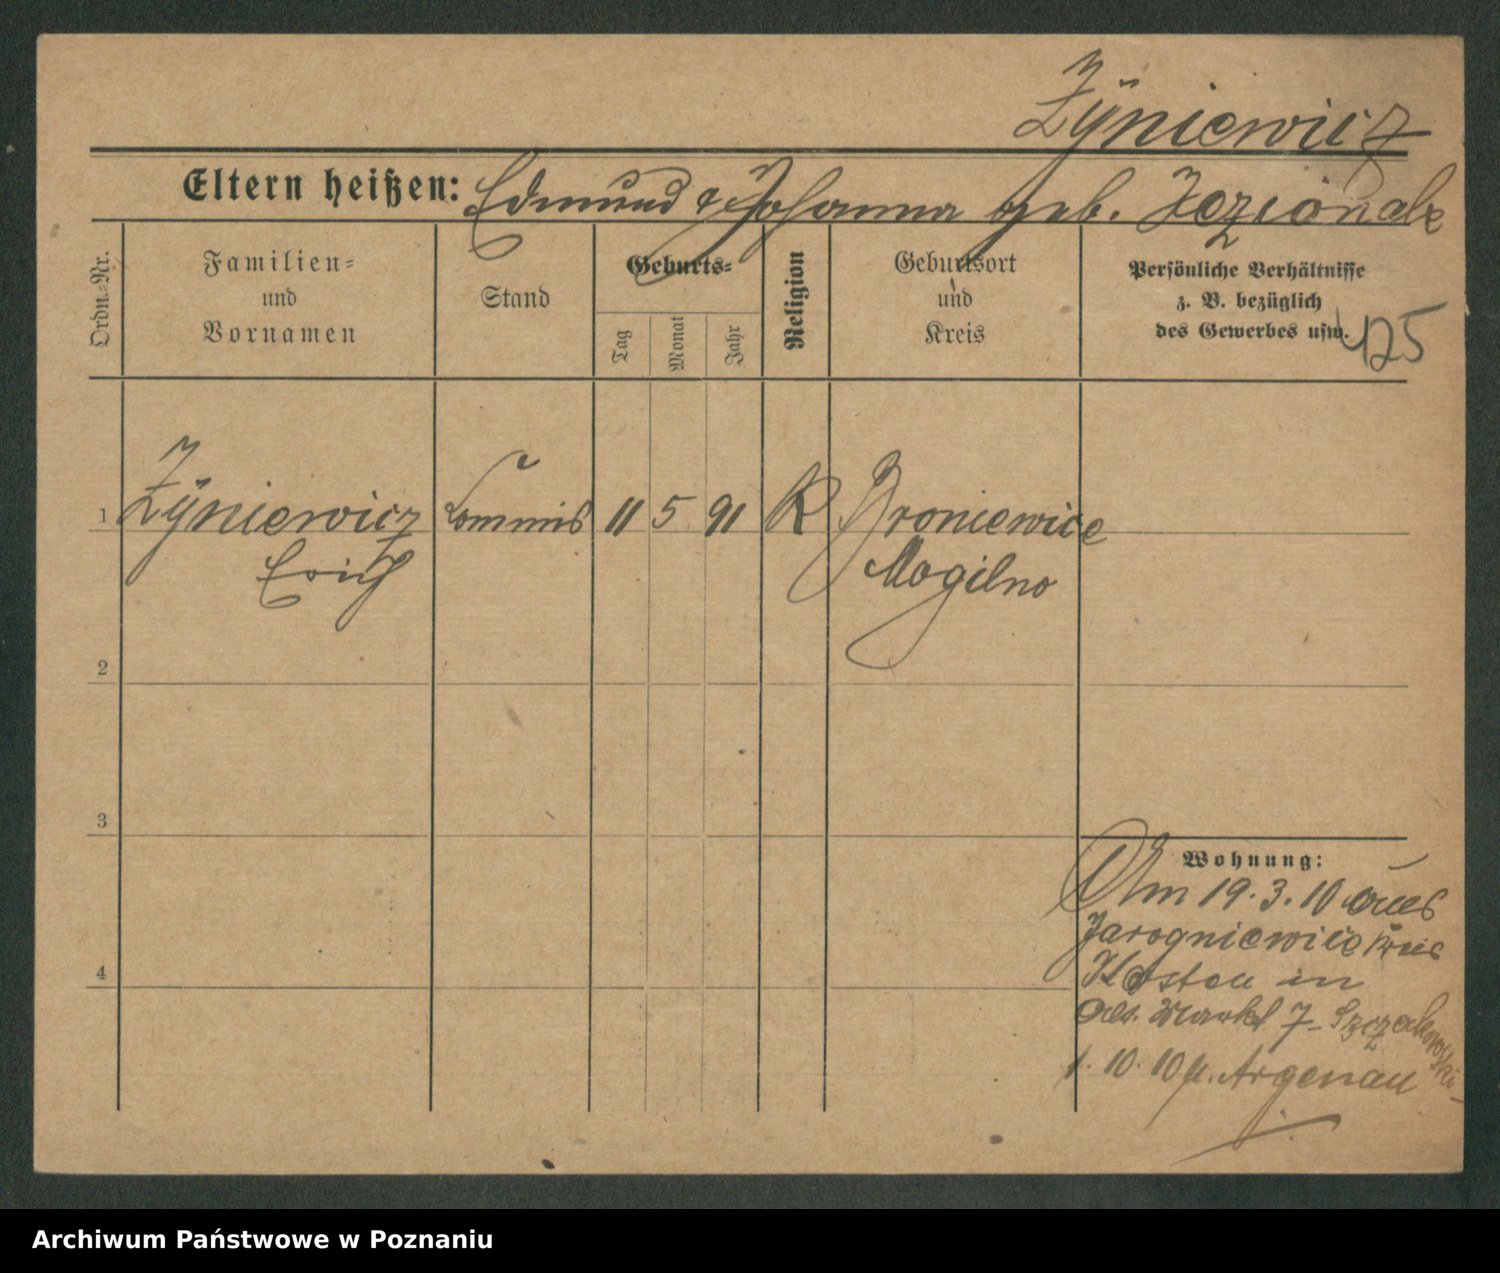 Zÿniewicz
Eltern heißen: Edmund & Johanna geb.
Ordn.-Nr.
Familien-
und
Vornamen
Stand
Geburts-
Tag
Monat
Jahr
Religion
Geburtsort
und
Kreis
Persönliche Verhältnisse
z. B. bezüglich
des Gewerbes usw.
125
1 Zÿniewicz Commis 11 5 91 K Broniewice
Erich Mogilno
2
3
4
Wohnung:
Am 19.3.10 aus
Jarogniewice Kreis
Kosten in
Markt 7
1.10.10 n. Argenau
Archiwum Państwowe w Poznaniu